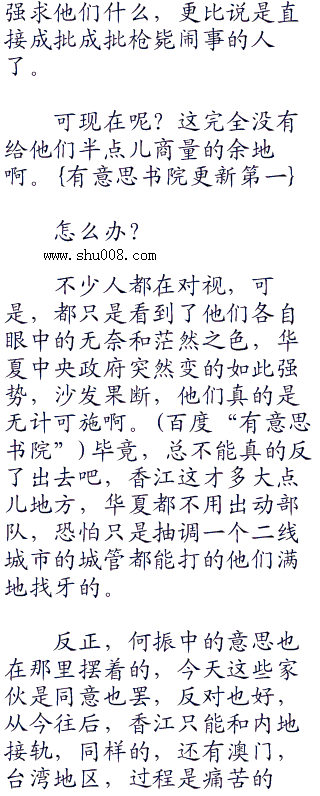 强求他们什么，更比说是直
接成批成批枪毙闹事的人
了。
可现在呢？这完全没有
给他们半点儿商量的余地
啊。{有意思书院更新第一}
怎么办？
www.shu008.com
不少人都在对视，可
是，都只是看到了他们各自
眼中的无奈和茫然之色，华
夏中央政府突然变的如此强
势，沙发果断，他们真的是
无计可施啊。(百度“有意思
书院”)毕竟，总不能真的反
了出去吧，香江这才多大点
儿地方，华夏都不用出动部
队，恐怕只是抽调一个二线
城市的城管都能打的他们满
地找牙的。
反正，何振中的意思也
在那里摆着的，今天这些家
伙是同意也罢，反对也好，
从今往后，香江只能和内地
接轨，同样的，还有澳门，
台湾地区，过程是痛苦的